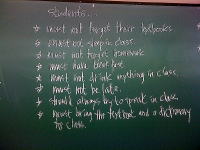 Students...
* must not forget their textbooks
* must not sleep in class.
* must not forget homework
* must have their
* must not drink anything in class.
* must not be late.
* should always try to speak in class.
* must bring the textbook and a dictionary
to class.